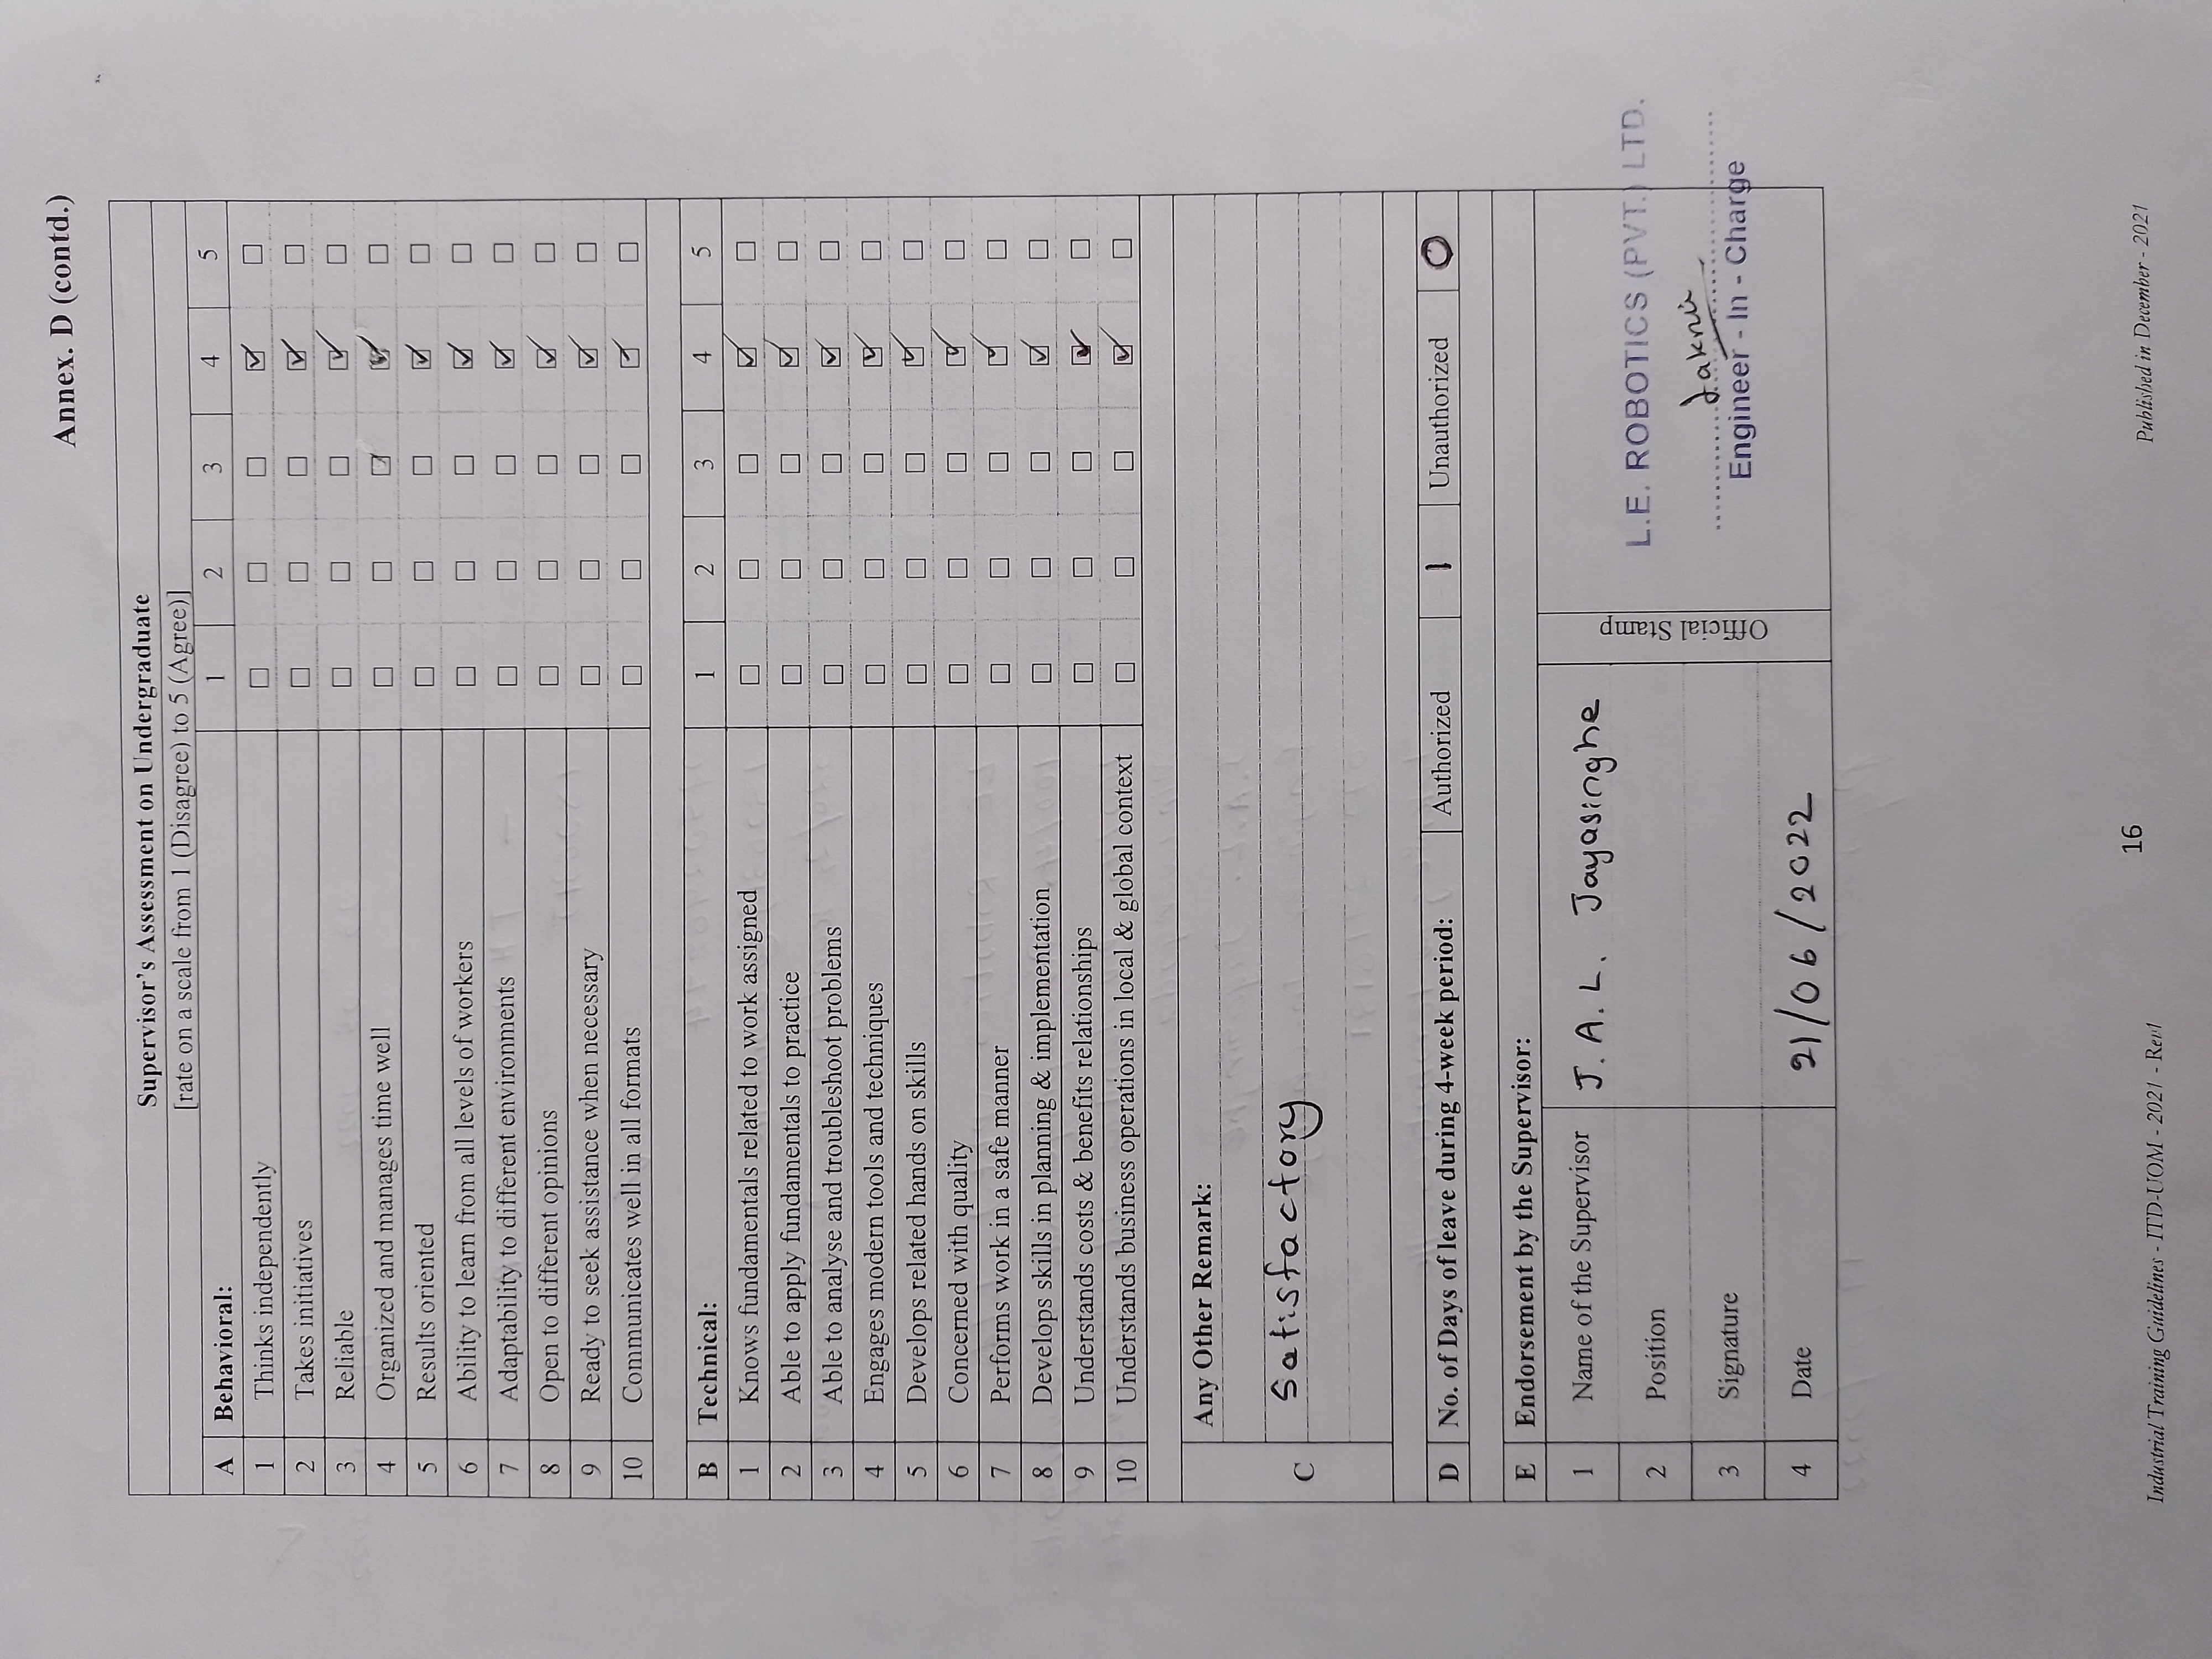 Annex. D (contd.)
Supervisor's Assessment on Undergraduate
[rate on a scale from 1 (Disagree) to 5 (Agree)]
A Behavioral: 1 2 3 4 5
1 Thinks independently ☐ ☐ ☐ ☑ ☐
2 Takes initiatives ☐ ☐ ☐ ☑ ☐
3 Reliable ☐ ☐ ☐ ☑ ☐
4 Organized and manages time well ☐ ☐ ☐ ☑ ☐
5 Results oriented ☐ ☐ ☐ ☑ ☐
6 Ability to learn from all levels of workers ☐ ☐ ☐ ☑ ☐
7 Adaptability to different environments ☐ ☐ ☐ ☑ ☐
8 Open to different opinions ☐ ☐ ☐ ☑ ☐
9 Ready to seek assistance when necessary ☐ ☐ ☐ ☑ ☐
10 Communicates well in all formats ☐ ☐ ☐ ☑ ☐
B Technical: 1 2 3 4 5
1 Knows fundamentals related to work assigned ☐ ☐ ☐ ☑ ☐
2 Able to apply fundamentals to practice ☐ ☐ ☐ ☑ ☐
3 Able to analyse and troubleshoot problems ☐ ☐ ☐ ☑ ☐
4 Engages modern tools and techniques ☐ ☐ ☐ ☑ ☐
5 Develops related hands on skills ☐ ☐ ☐ ☑ ☐
6 Concerned with quality ☐ ☐ ☐ ☑ ☐
7 Performs work in a safe manner ☐ ☐ ☐ ☑ ☐
8 Develops skills in planning & implementation ☐ ☐ ☐ ☑ ☐
9 Understands costs & benefits relationships ☐ ☐ ☐ ☑ ☐
10 Understands business operations in local & global context ☐ ☐ ☐ ☑ ☐
C Any Other Remark:
Satisfactory
D No. of Days of leave during 4-week period: Authorized 1 Unauthorized 0
E Endorsement by the Supervisor:
1 Name of the Supervisor J. A. L. Jayasinghe
2 Position
3 Signature
4 Date 21/06/2022
Official Stamp
L.E. ROBOTICS (PVT.) LTD.
Engineer - In - Charge
16
Industrial Training Guidelines - ITD-UOM - 2021 - Rev1
Published in December - 2021